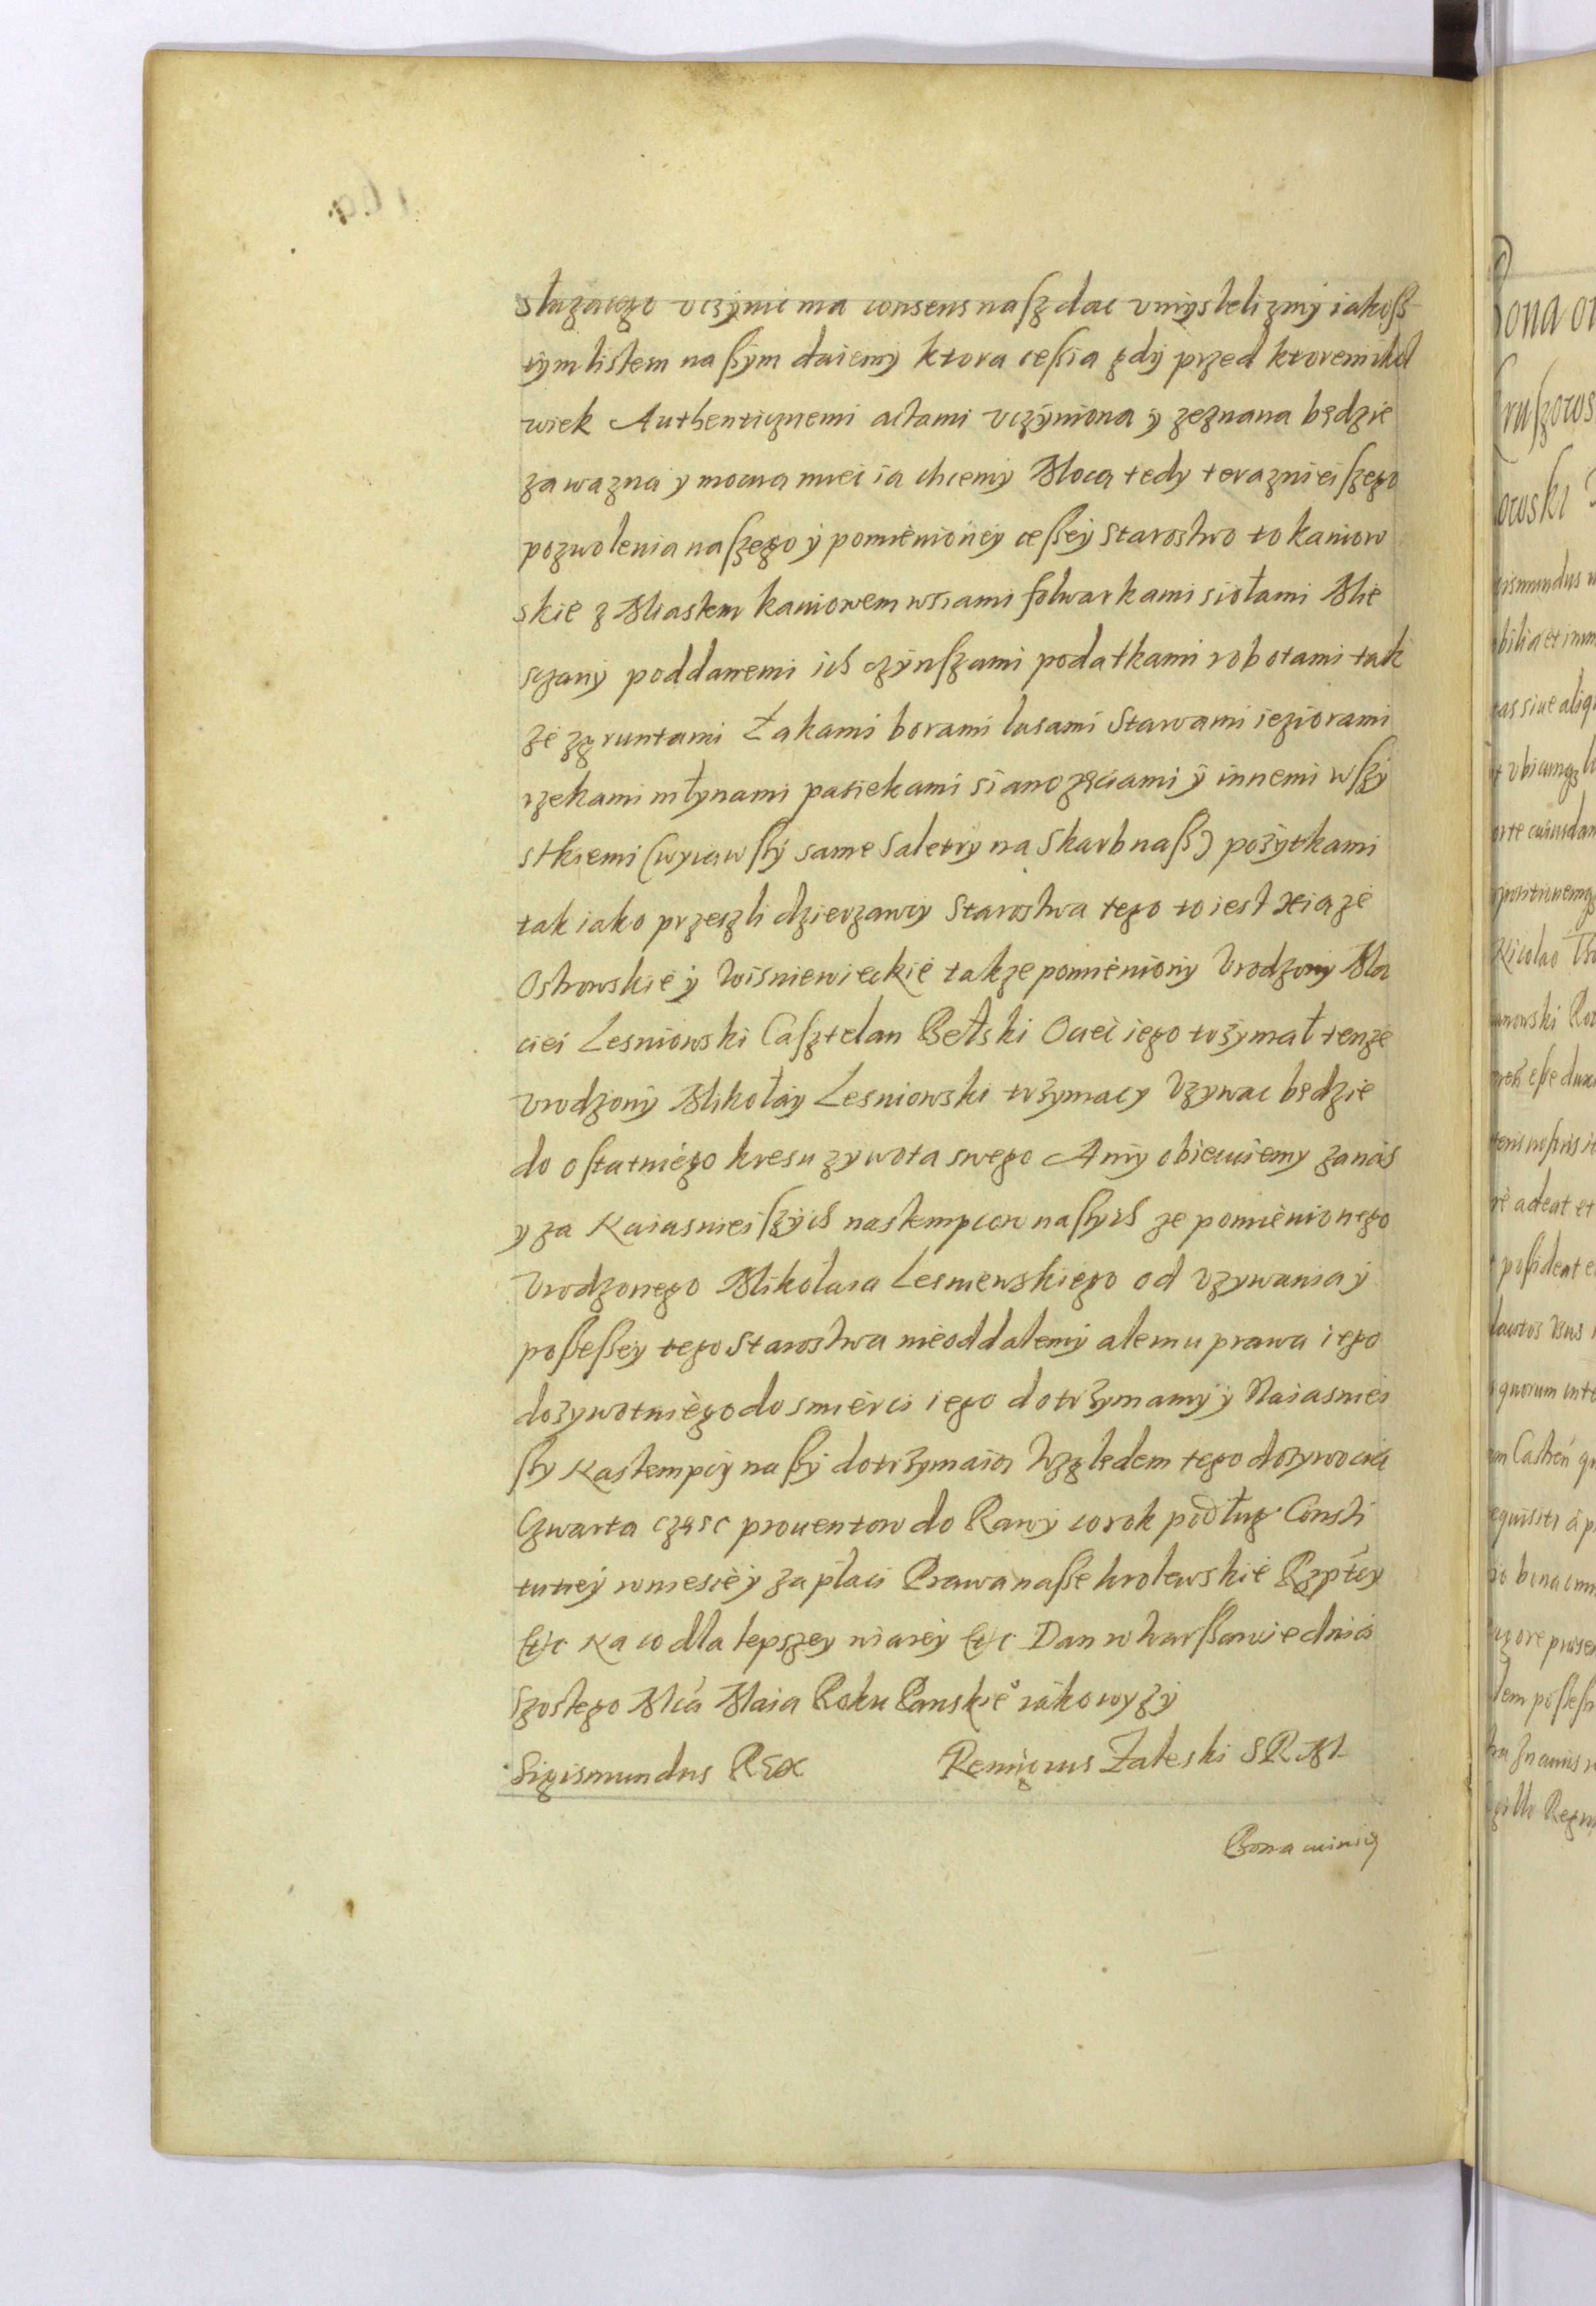 słuzącego vczynic ma consens nasz dac vmyslelizmy iakosz
tym listem naszym daiemy ktora cessia gdy przed ktoremikol
wiek Authenticznemi actami vczyniona y zeznana będzie
za wazną y mocną miec ią chcemy Mocą tedy terazniejszego
pozwolenia naszego y pomienioney cessey starostwo to kaniow
skie z Miastem kaniowem wsiami folwarkami siołami Mie
sczany poddanemi ich czynszami podatkami robotami tak
ze z gruntami Łąkami borami lasami Stawami ieziorami
rzekami młynami pasiekami sianozęciami y innemi wszy
stkiemi (wyiąwszy same Saletry na Skarb nasz) pożytkami
tak iako przeszli dzierzawcy Starostwa tego to iest xiąże
Ostrowskie y Wisniewieckie takze pomieniony Vrodzony Ma
ciei Lesniowski Casztelan Bełski Ociec iego trzymał tenze
Vrodzony Mikołay Lesniowski trzymac y Vzywac będzie
do ostatniego kresu zywota swego A my obiecuiemy za nas
y za Naiasnieiszych nastempcow naszych ze pomienionego
Vrodzonego Mikołaia Lesniewskiego od Vzywania y
possessey tego Starostwa nie oddalemy ale mu prawa iego
dozywotniego do smierci iego dotrzymamy y Naiasniei
szy Nastempcy naszy dotrzymaią Względem tego dozywocia
Czwarta częsc prouentow do Rawy co rok podług Consti
tutiey wniesie y zapłaci Prawa nasze krolewskie Rzptey
Etc Na co dla lepszey wiarey Etc Dan w Warszawie dnia
szostego Mca Maia Roku Panskieo iako wyzy
Sigismundus Rex Remigius Zaleski SRM